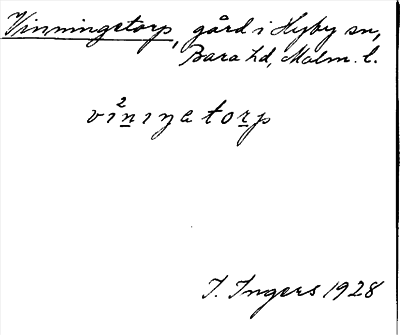 Vinningetorp, gård i Hyby sn,
Bara hd, Malm. l.
vi²nıŋatorp
I. Ingers 1928